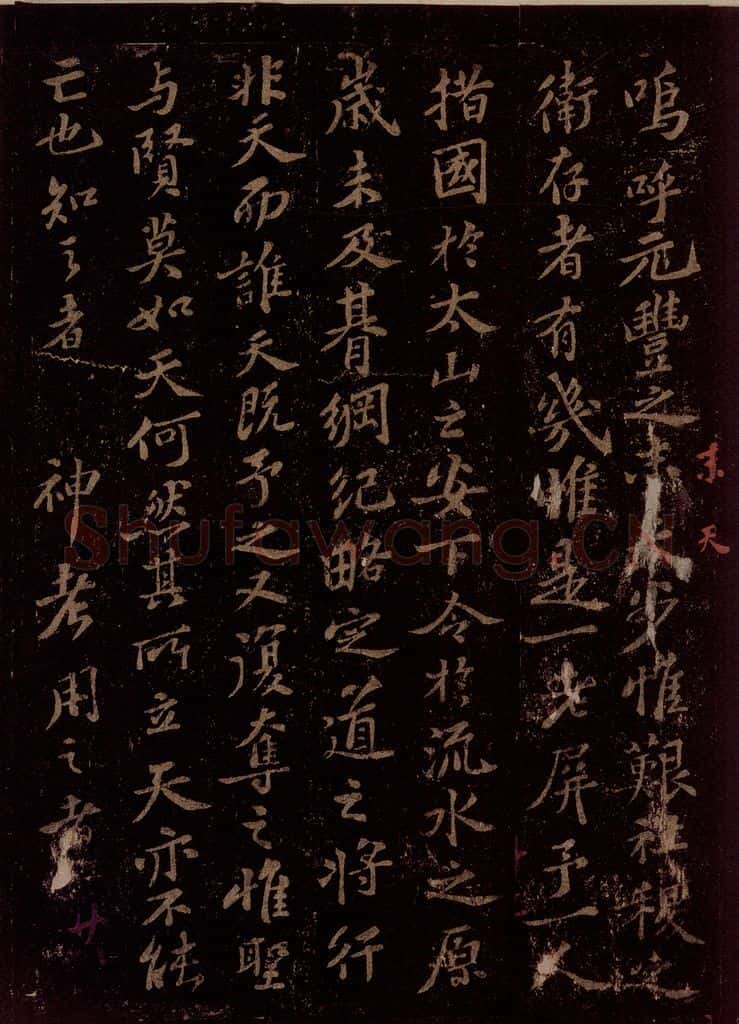 嗚呼元豐之末天步惟艱社稷之
衛存者有幾惟是一老屏予一人
措國於太山之安下令於流水之原
歲未及朞綱紀略定道之將行
非天而誰天既予之又復奪之惟聖
与賢莫如天何然其所立天亦不能
亡也知之者 神考用之者
末天
廿
Shufawang.CN